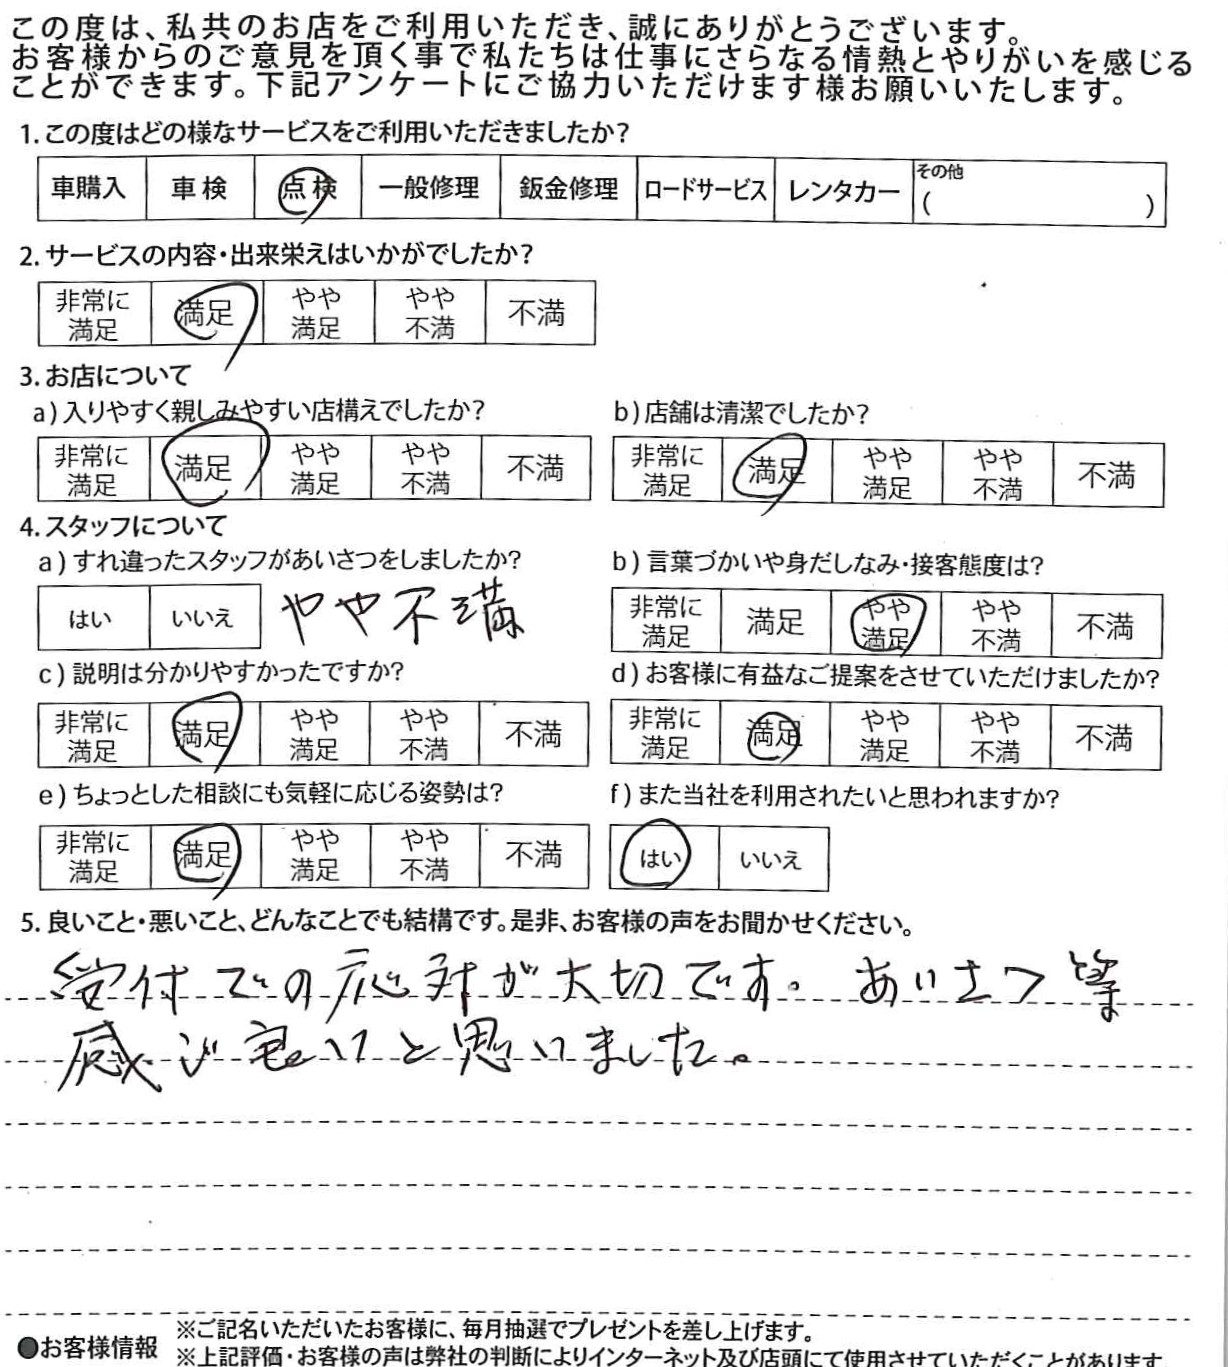 この度は、私共のお店をご利用いただき、誠にありがとうございます。
お客様からのご意見を頂く事で私たちは仕事にさらなる情熱とやりがいを感じる
ことができます。下記アンケートにご協力いただけます様お願いいたします。
1.この度はどの様なサービスをご利用いただきましたか?
車購入 車検 点検 一般修理 鈑金修理 ロードサービス レンタカー その他 ( )
2.サービスの内容・出来栄えはいかがでしたか?
非常に満足 満足 やや満足 やや不満 不満
3.お店について
a)入りやすく親しみやすい店構えでしたか? b)店舗は清潔でしたか?
非常に満足 満足 やや満足 やや不満 不満 非常に満足 満足 やや満足 やや不満 不満
4.スタッフについて
a)すれ違ったスタッフがあいさつをしましたか? b)言葉づかいや身だしなみ・接客態度は?
はい いいえ やや不満 非常に満足 満足 やや満足 やや不満 不満
c)説明は分かりやすかったですか? d)お客様に有益なご提案をさせていただけましたか?
非常に満足 満足 やや満足 やや不満 不満 非常に満足 満足 やや満足 やや不満 不満
e)ちょっとした相談にも気軽に応じる姿勢は? f)また当社を利用されたいと思われますか?
非常に満足 満足 やや満足 やや不満 不満 はい いいえ
5.良いこと・悪いこと、どんなことでも結構です。是非、お客様の声をお聞かせください。
受付での応対が大切です。あいさつ等
感じ悪いと思いました。
●お客様情報 ※ご記名いただいたお客様に、毎月抽選でプレゼントを差し上げます。
※上記評価・お客様の声は弊社の判断によりインターネット及び店頭にて使用させていただくことがあります